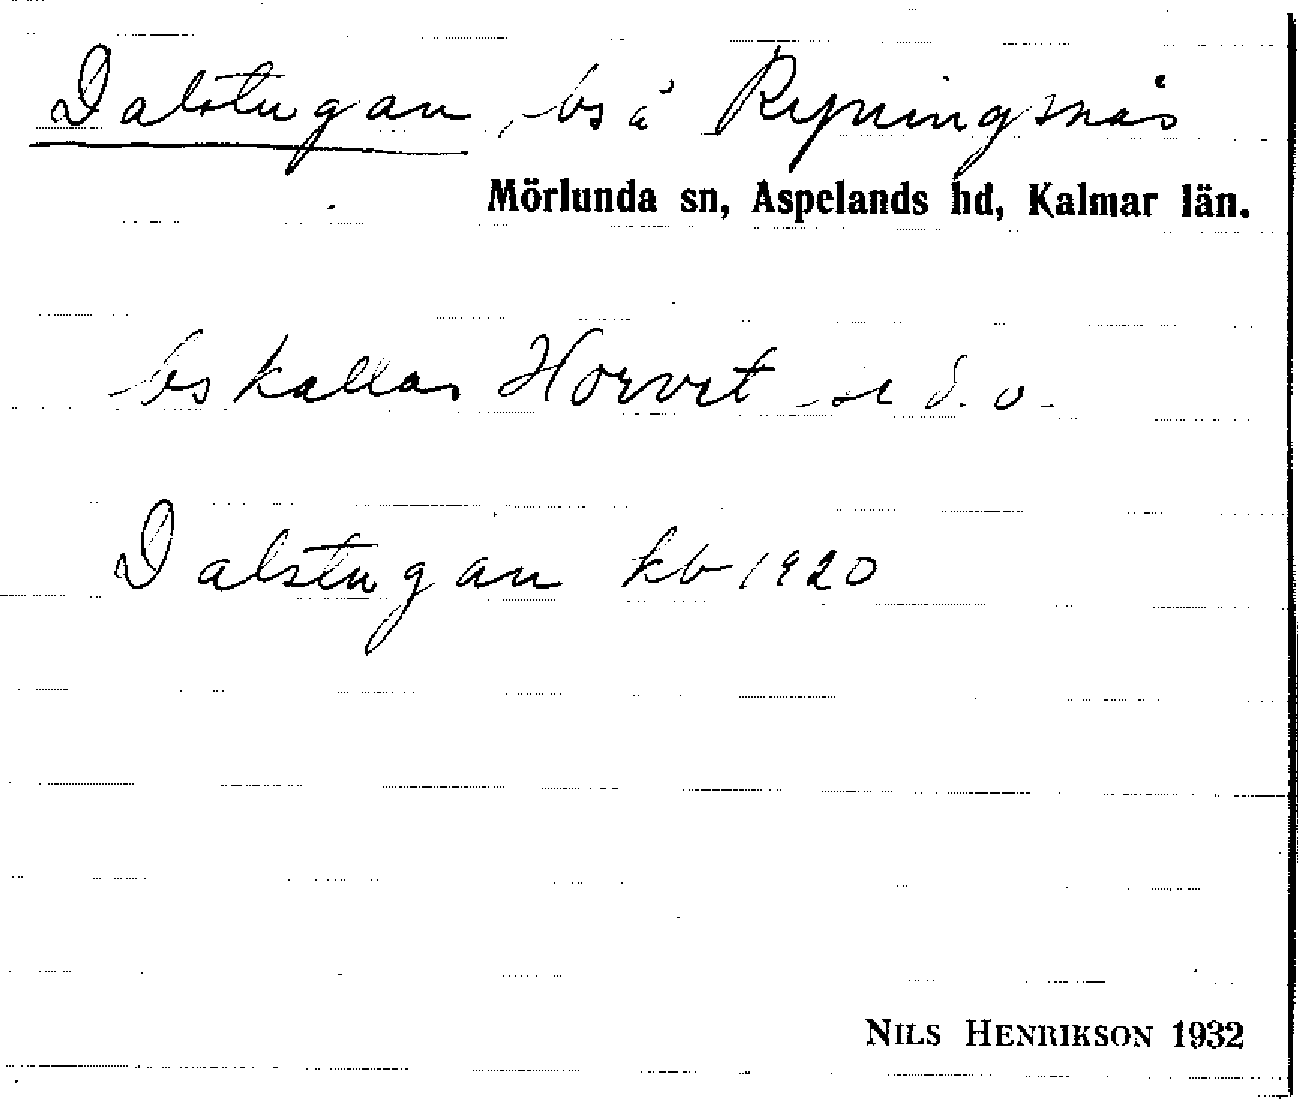 Dalstugan, bs å Ryningsnäs
Mörlunda sn, Aspelands hd, Kalmar län.
bs kallas Horvet se d. o.
Dalstugan kb 1920
NILS HENRIKSON 1932